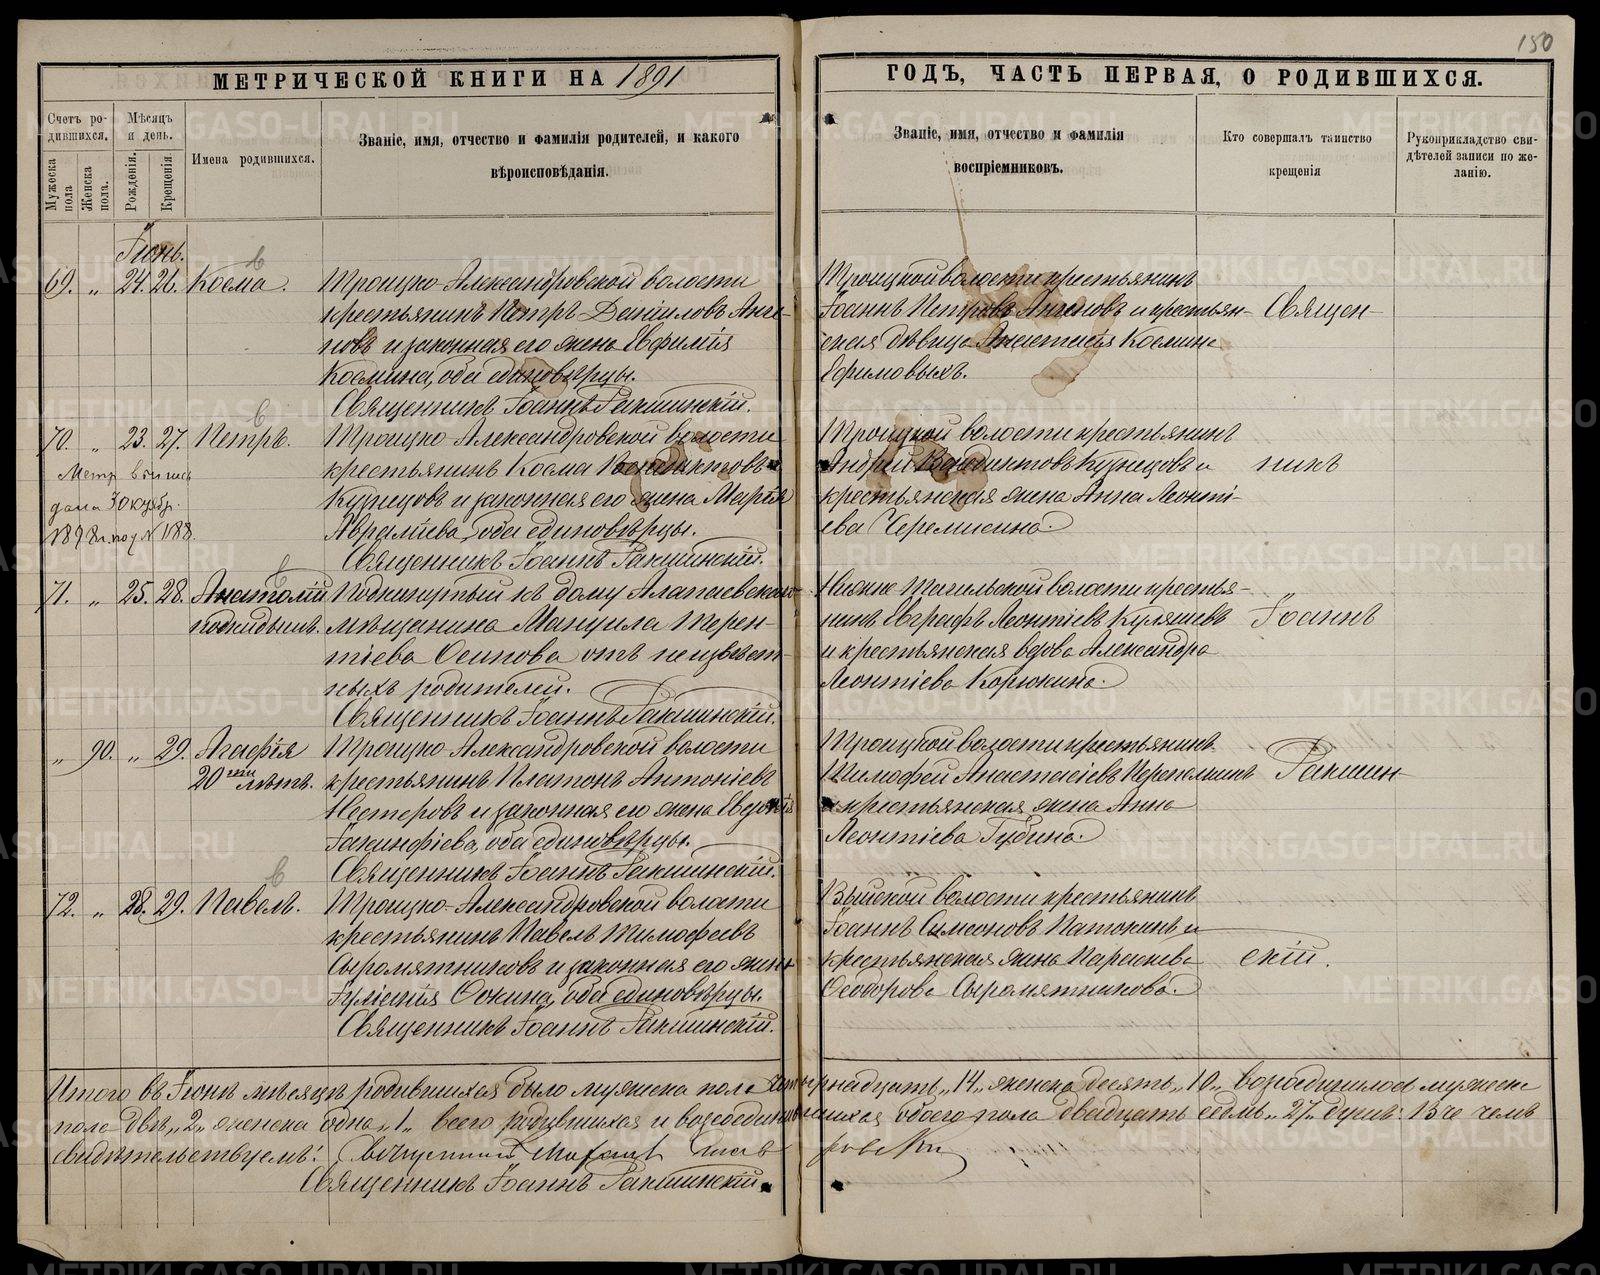 150
МЕТРИЧЕСКОЙ КНИГИ НА 1891
ГОДЪ, ЧАСТЬ ПЕРВАЯ, О РОДИВШИХСЯ.
Счетъ ро-
дившихся.
Мужеска пола
Женска пола.
Мѣсяцъ
и день.
Рожденія.
Крещенія.
Имена родившихся.
Званіе, имя, отчество и фамилія родителей, и какого
вѣроисповѣданія.
Званіе, имя, отчество и фамилія
воспріемниковъ.
Кто совершалъ таинство
крещенія
Рукоприкладство сви-
дѣтелей записи по же-
ланію.
Іюнь.
69. „ 24. 26. Косма.
Троицко-Александровской волости
крестьянинъ Петръ Даніиловъ Аге-
новъ и законная его жена Евфимія
Космина, оба единовѣрцы.
Священникъ Іоаннъ Ракшинскій.
Троицкой волости крестьянинъ
Іоаннъ Петровъ и крестьян-
ская дѣвица Анастасія Космина
Ефимовыхъ.
Священ-
70. „ 23. 27. Петръ.
Метр выпись
дана 30 октбр.
1898 г. под № 1188.
Троицко-Александровской волости
крестьянинъ Косма Венедиктовъ
Кузнецовъ и законная его жена Марія
Авраміева, оба единовѣрцы.
Священникъ Іоаннъ Ракшинскій.
Троицкой волости крестьянинъ
Андрей Венедиктовъ Кузнецовъ и
крестьянская жена Анна Леонті-
ева Черемисина.
никъ
71. „ 25. 28. Анатолій
подкидышъ.
Подкинутый къ дому Алапаевскаго
мѣщанина Мануила Терен-
тіева Осипова отъ неизвѣст-
ныхъ родителей.
Священникъ Іоаннъ Ракшинскій.
Нижне Тагильской волости крестья-
нинъ Евграфъ Леонтіевъ Куляшевъ
и крестьянская вдова Александра
Леонтіева Корюкина.
Іоаннъ
„ 90. „ 29. Агафія
20ти лѣтъ.
Троицко-Александровской волости
крестьянинъ Платонъ Антоніевъ
Нестеровъ и законная его жена Евдокія
Іакинфіева, оба единовѣрцы.
Священникъ Іоаннъ Ракшинскій.
Троицкой волости крестьянинъ
Тимофей Анастасіевъ Перепелкинъ
и крестьянская жена Анна
Леонтіева Губина.
Ракшин-
72. „ 28. 29. Павелъ.
Троицко-Александровской волости
крестьянинъ Павелъ Тимофеевъ
Сыромятниковъ и законная его жена
Гликерія Фокина, оба единовѣрцы.
Священникъ Іоаннъ Ракшинскій.
Выйской волости крестьянинъ
Іоаннъ Симеоновъ Патокинъ и
крестьянская жена Параскева
Ѳеодорова Сыромятникова.
скій.
Итого въ Іюнѣ мѣсяцѣ родившихся было мужеска пола четырнадцать „14„ женска десять „10„ возсоединилось мужеска
пола два „2„ женска одна „1„ всего родившихся и возсоединившихся обоего пола двадцать седмь „27„ душъ. Въ чемъ
свидѣтельствуемъ:
Священникъ Іоаннъ Ракшинскій.
METRIKI.GASO-URAL.RU